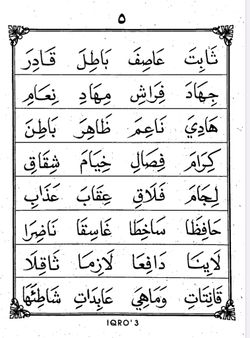 ٥
ثَابِتَ عَاصِفَ بَاطِلَ قَادِرَ
جِهَادَ فِرَاشِ مِهَادِ نِعَامِ
هَادِيَ نَاعِمَ ظَاهِرَ بَاطِنَ
كِرَامَ فِصَالِ خِيَامَ شِقَاقِ
لِجَامَ فَلَاقِ عِقَابَ عَذَابِ
حَافِظَا سَاخِطَا غَاسِقَا نَاضِرَا
لَابِنَا دَافِعَا لَازِمَا ثَاقِلَا
قَانِتَاتِ وَمَاهِيَ عَابِدَاتِ شَاطِئَهَا
IQRO'3